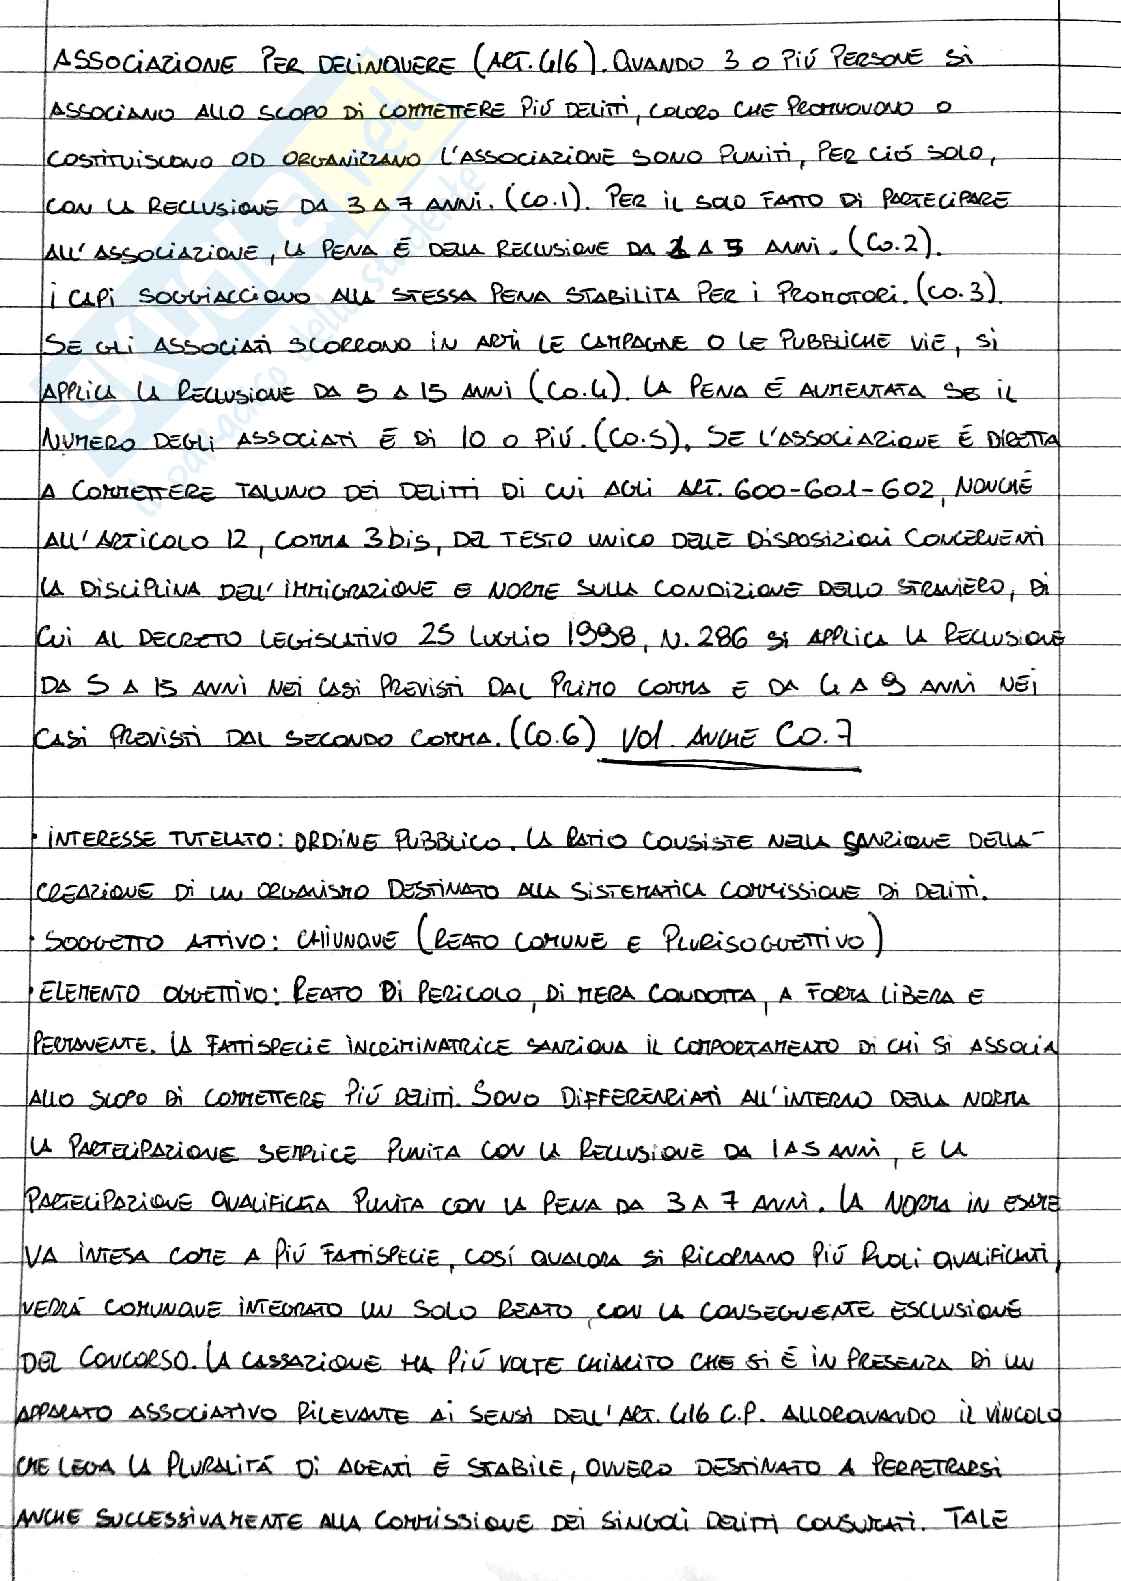 ASSOCIAZIONE PER DELINQUERE (ART. 416). QUANDO 3 O PIÚ PERSONE SI
ASSOCIANO ALLO SCOPO DI COMMETTERE PIÚ DELITTI, COLORO CHE PROMUOVONO O
COSTITUISCONO OD ORGANIZZANO L'ASSOCIAZIONE SONO PUNITI, PER CIÓ SOLO,
CON LA RECLUSIONE DA 3 A 7 ANNI. (CO.1). PER IL SOLO FATTO DI PARTECIPARE
ALL'ASSOCIAZIONE, LA PENA É DELLA RECLUSIONE DA 1 A 5 ANNI. (CO.2).
I CAPI SOGGIACCIONO ALLA STESSA PENA STABILITA PER I PROMOTORI. (CO.3).
SE GLI ASSOCIATI SCORRONO IN ARMI LE CAMPAGNE O LE PUBBLICHE VIE, SI
APPLICA LA RECLUSIONE DA 5 A 15 ANNI (CO.4). LA PENA É AUMENTATA SE IL
NUMERO DEGLI ASSOCIATI É DI 10 O PIÚ. (CO.5). SE L'ASSOCIAZIONE É DIRETTA
A COMMETTERE TALUNO DEI DELITTI DI CUI AGLI ART. 600-601-602, NONCHÉ
ALL'ARTICOLO 12, COMMA 3 bis, DEL TESTO UNICO DELLE DISPOSIZIONI CONCERNENTI
LA DISCIPLINA DELL'IMMIGRAZIONE E NORME SULLA CONDIZIONE DELLO STRANIERO, DI
CUI AL DECRETO LEGISLATIVO 25 LUGLIO 1998, N. 286 SI APPLICA LA RECLUSIONE
DA 5 A 15 ANNI NEI CASI PREVISTI DAL PRIMO COMMA E DA 4 A 9 ANNI NEI
CASI PREVISTI DAL SECONDO COMMA. (CO.6) VDI. ANCHE CO.7
· INTERESSE TUTELATO: ORDINE PUBBLICO. LA RATIO CONSISTE NELLA SANZIONE DELLA
CREAZIONE DI UN ORGANISMO DESTINATO ALLA SISTEMATICA COMMISSIONE DI DELITTI.
· SOGGETTO ATTIVO: CHIUNQUE (REATO COMUNE E PLURISOGGETTIVO)
· ELEMENTO OGGETTIVO: REATO DI PERICOLO, DI MERA CONDOTTA, A FORMA LIBERA E
PERMANENTE. LA FATTISPECIE INCRIMINATRICE SANZIONA IL COMPORTAMENTO DI CHI SI ASSOCIA
ALLO SCOPO DI COMMETTERE PIÚ DELITTI. SONO DIFFERENZIATI ALL'INTERNO DELLA NORMA
LA PARTECIPAZIONE SEMPLICE PUNITA CON LA RECLUSIONE DA 1 A 5 ANNI, E LA
PARTECIPAZIONE QUALIFICATA PUNITA CON LA PENA DA 3 A 7 ANNI. LA NORMA IN ESAME
VA INTESA COME A PIÚ FATTISPECIE, COSÍ QUALORA SI RICOPRANO PIÚ RUOLI QUALIFICANTI,
VERRÁ COMUNQUE INTEGRATO UN SOLO REATO, CON LA CONSEGUENTE ESCLUSIONE
DEL CONCORSO. LA CASSAZIONE HA PIÚ VOLTE CHIARITO CHE SI É IN PRESENZA DI UN
APPARATO ASSOCIATIVO RILEVANTE AI SENSI DELL'ART. 416 C.P. ALLORQUANDO IL VINCOLO
CHE LEGA LA PLURALITÁ DI AGENTI É STABILE, OVVERO DESTINATO A PERPETRARSI
ANCHE SUCCESSIVAMENTE ALLA COMMISSIONE DEI SINGOLI DELITTI CONSUMATI. TALE
SKUOLA.net
il paradiso dello studente